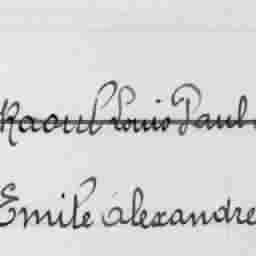 Raoul Louis Paul
Emile Alexandre